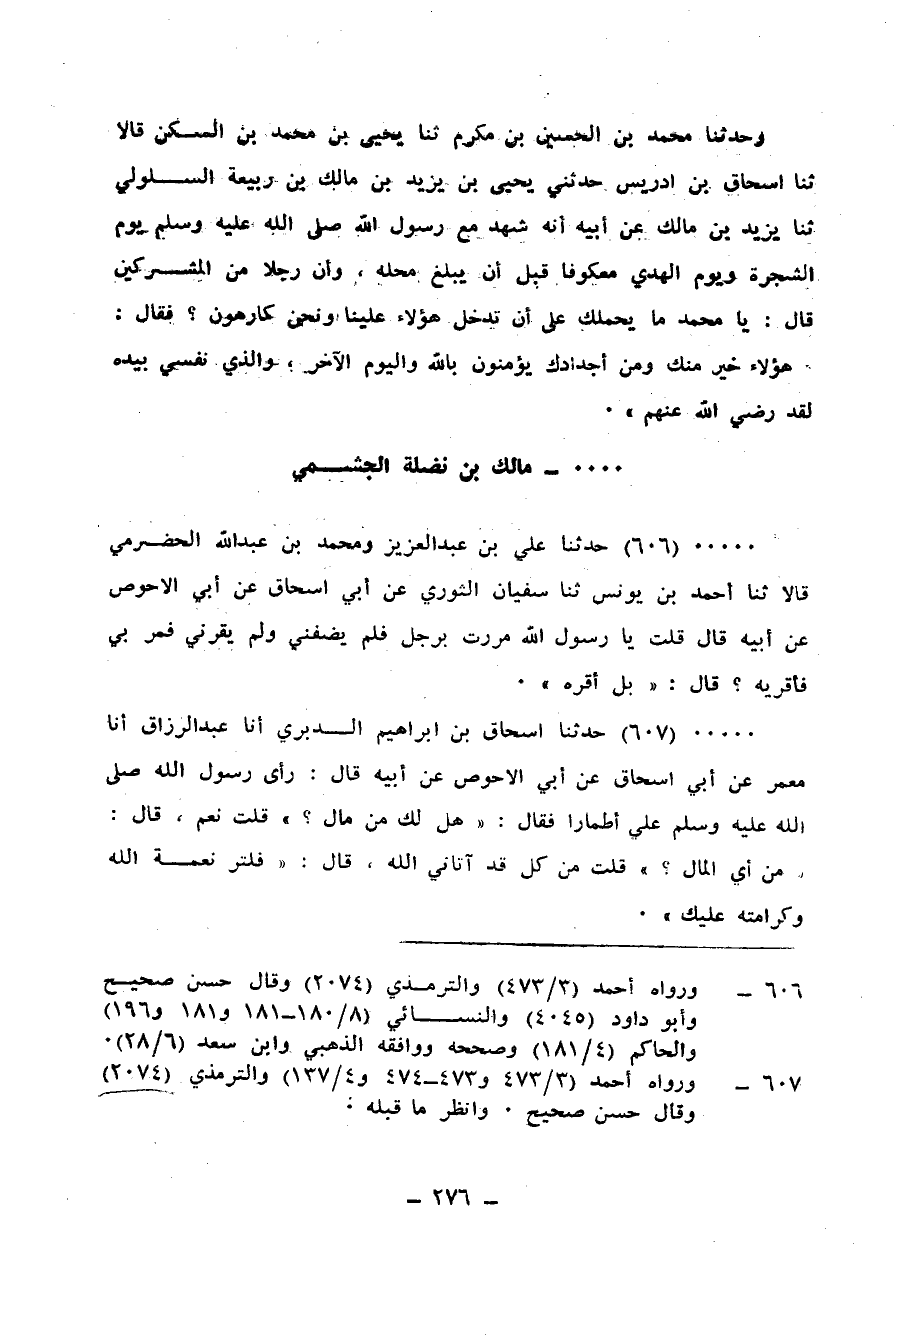 وحدثنا محمد بن الحسين بن مكرم ثنا يحيى بن محمد بن السكن قالا
ثنا اسحاق بن ادريس حدثني يحيى بن يزيد بن مالك بن ربيعة السلولي
ثنا يزيد بن مالك عن أبيه أنه شهد مع رسول الله صلى الله عليه وسلم يوم
الشجرة ويوم الهدي معكوفا قبل أن يبلغ محله ، وأن رجلا من المشركين
قال : يا محمد ما يحملك على أن تدخل هؤلاء علينا ونحن كارهون ؟ فقال :
هؤلاء خير منك ومن أجدادك يؤمنون بالله واليوم الآخر ، والذي نفسي بيده
لقد رضي الله عنهم » ٠
٠٠٠٠ ـ مالك بن نضلة الجشمي
٠٠٠٠٠ (٦٠٦) حدثنا علي بن عبدالعزيز ومحمد بن عبدالله الحضرمي
قالا ثنا أحمد بن يونس ثنا سفيان الثوري عن أبي اسحاق عن أبي الاحوص
عن أبيه قال قلت يا رسول الله مررت برجل فلم يضفني ولم يقرني فمر بي
فأقريه ؟ قال : « بل أقره » ٠
٠٠٠٠٠ (٦٠٧) حدثنا اسحاق بن ابراهيم الدبري أنا عبدالرزاق أنا
معمر عن أبي اسحاق عن أبي الاحوص عن أبيه قال : رأى رسول الله صلى
الله عليه وسلم علي أطمارا فقال : « هل لك من مال ؟ » قلت نعم ، قال :
من أي المال ؟ » قلت من كل قد آتاني الله ، قال : « فلتر نعمة الله
وكرامته عليك » ٠
٦٠٦ ـ ورواه أحمد (٤٧٣/٣) والترمذي (٢٠٧٤) وقال حسن صحيح
وأبو داود (٤٠٤٥) والنسائي (١٨٠/٨ـ١٨١ و١٨١ و١٩٦)
والحاكم (١٨١/٤) وصححه ووافقه الذهبي وابن سعد (٢٨/٦)٠
٦٠٧ ـ ورواه أحمد (٤٧٣/٣ و٤٧٣ـ٤٧٤ و١٣٧/٤) والترمذي (٢٠٧٤)
وقال حسن صحيح ٠ وانظر ما قبله ٠
ـ ٢٧٦ ـ